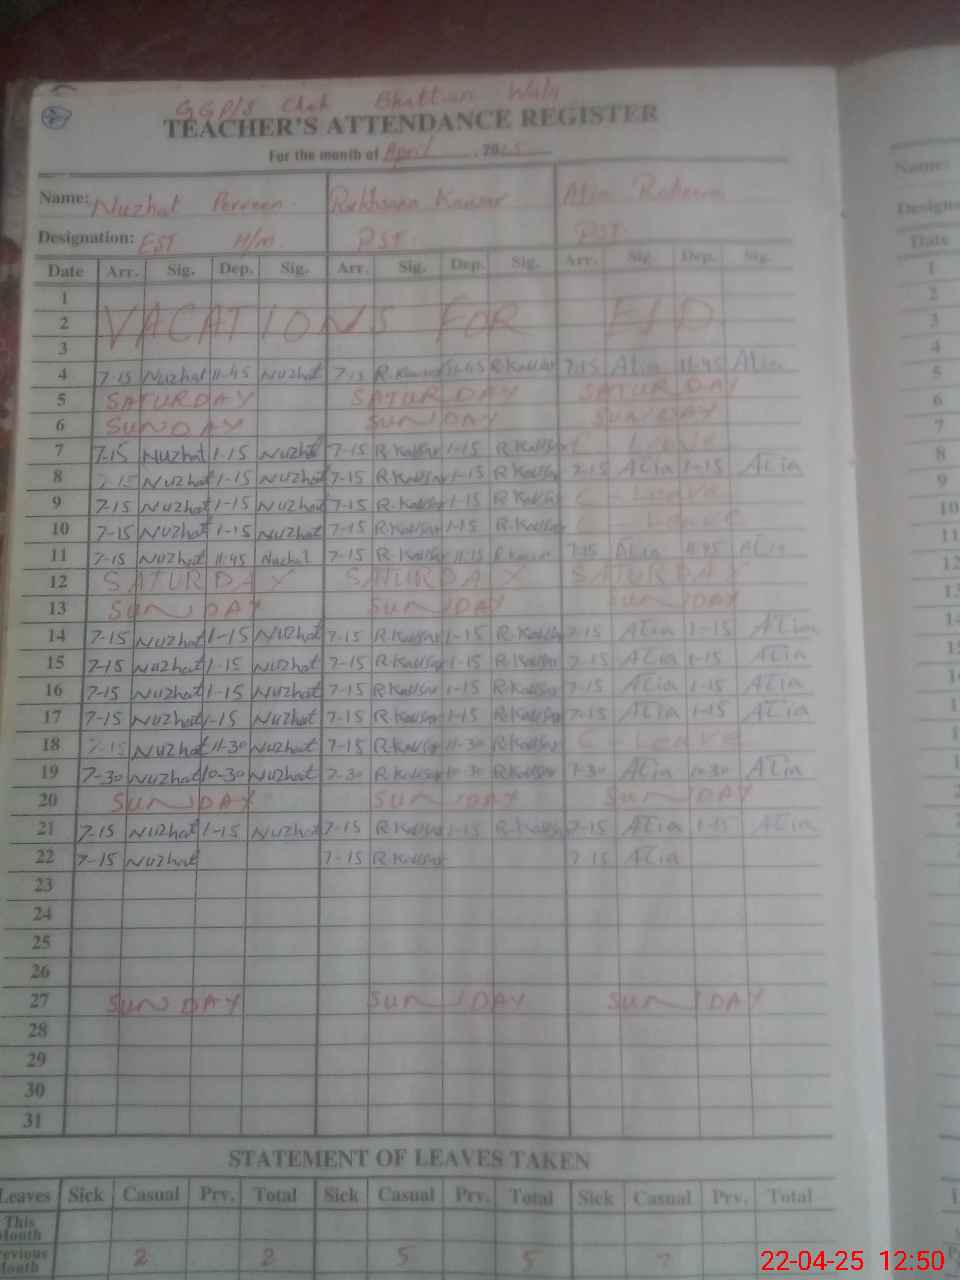 GGP/S Chak Bhattian Wala
TEACHER'S ATTENDANCE REGISTER
For the month of April, 2025
Name: Nuzhat Perveen Rukhsana Kausar Alia
Designation: EST H/m. PST. PST.
Date Arr. Sig. Dep. Sig. Arr. Sig. Dep. Sig. Arr. Sig. Dep. Sig.
1
2 VACATIONS FOR EID
3
4 7-15 Nuzhat 11-45 Nuzhat 7-15 R.Kausar 11-45 R.Kausar 7-15 Alia 11-45 Alia
5 SATURDAY SATURDAY SATURDAY
6 SUNDAY SUNDAY SUNDAY
7 7-15 Nuzhat 1-15 Nuzhat 7-15 R.Kausar 1-15 R.Kausar C Leave
8 7-15 Nuzhat 1-15 Nuzhat 7-15 R.Kausar 1-15 R.Kausar 7-15 Alia 1-15 Alia
9 7-15 Nuzhat 1-15 Nuzhat 7-15 R.Kausar 1-15 R.Kausar C - Leave
10 7-15 Nuzhat 1-15 Nuzhat 7-15 R.Kausar 1-15 R.Kausar C - Leave
11 7-15 Nuzhat 11-45 Nuzhat 7-15 R.Kausar 11-15 R.Kausar 7-15 Alia 11-45 Alia
12 SATURDAY SATURDAY SATURDAY
13 SUNDAY SUNDAY SUNDAY
14 7-15 Nuzhat 1-15 Nuzhat 7-15 R.Kausar 1-15 R.Kausar 7-15 Alia 1-15 Alia
15 7-15 Nuzhat 1-15 Nuzhat 7-15 R.Kausar 1-15 R.Kausar 7-15 Alia 1-15 Alia
16 7-15 Nuzhat 1-15 Nuzhat 7-15 R.Kausar 1-15 R.Kausar 7-15 Alia 1-15 Alia
17 7-15 Nuzhat 1-15 Nuzhat 7-15 R.Kausar 1-15 R.Kausar 7-15 Alia 1-15 Alia
18 7-15 Nuzhat 11-30 Nuzhat 7-15 R.Kausar 11-30 R.Kausar C - Leave
19 7-30 Nuzhat 10-30 Nuzhat 7-30 R.Kausar 10-30 R.Kausar 7-30 Alia 10-30 Alia
20 SUNDAY SUNDAY SUNDAY
21 7-15 Nuzhat 1-15 Nuzhat 7-15 R.Kausar 1-15 R.Kausar 7-15 Alia 1-15 Alia
22 7-15 Nuzhat 7-15 R.Kausar 7-15 Alia
23
24
25
26
27 SUNDAY SUNDAY SUNDAY
28
29
30
31
STATEMENT OF LEAVES TAKEN
Leaves Sick Casual Prv. Total Sick Casual Prv. Total Sick Casual Prv. Total
This
Month
Previous 2 2 5 5
Month
22-04-25 12:50